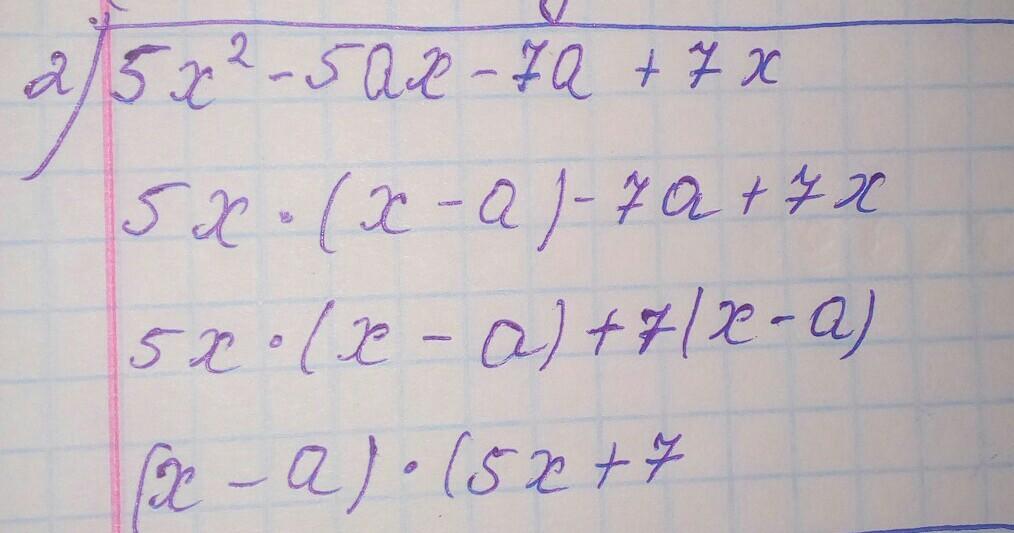 2) 5x² - 5ax - 7a + 7x
5x · (x - a) - 7a + 7x
5x · (x - a) + 7(x - a)
(x - a) · (5x + 7